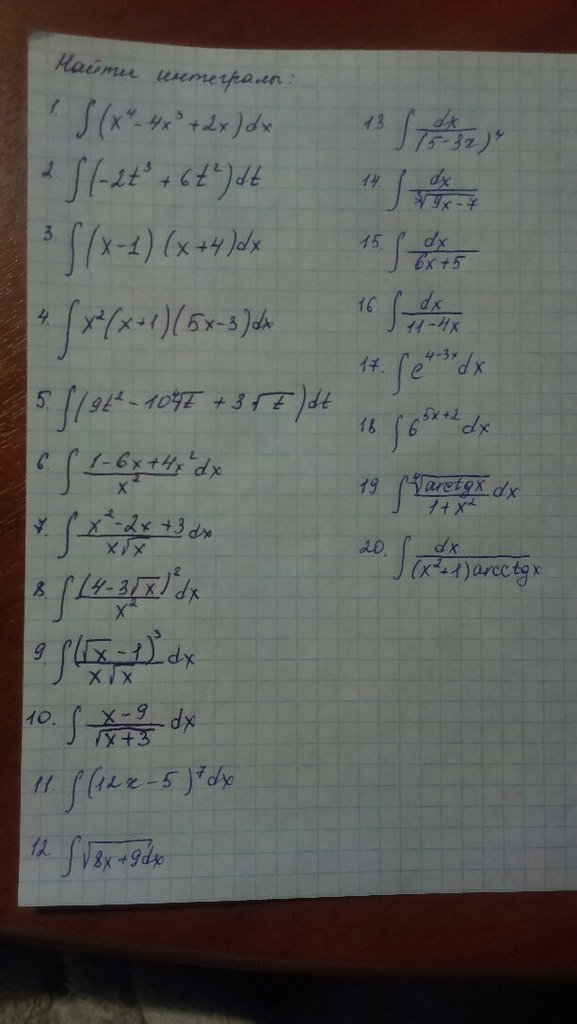 Найти интегралы:
1. ∫(x⁴-4x³+2x)dx
2. ∫(-2t³+6t²)dt
3. ∫(x-1)(x+4)dx
4. ∫x²(x+1)(5x-3)dx
5. ∫(9t²-10⁴√t+3√t)dt
6. ∫(1-6x+4x²)/x² dx
7. ∫(x²-2x+3)/(x√x) dx
8. ∫(4-3√x)²/x² dx
9. ∫(√x-1)³/(x√x) dx
10. ∫(x-9)/(√x+3) dx
11. ∫(12x-5)⁷dx
12. ∫√(8x+9)dx
13. ∫dx/(5-3x)⁴
14. ∫dx/√(9x-7)
15. ∫dx/(6x+5)
16. ∫dx/(11-4x)
17. ∫e⁴⁻³ˣdx
18. ∫6⁵ˣ⁺²dx
19. ∫⁴√(arctgx)/(1+x²) dx
20. ∫dx/((x²+1)arcctgx)